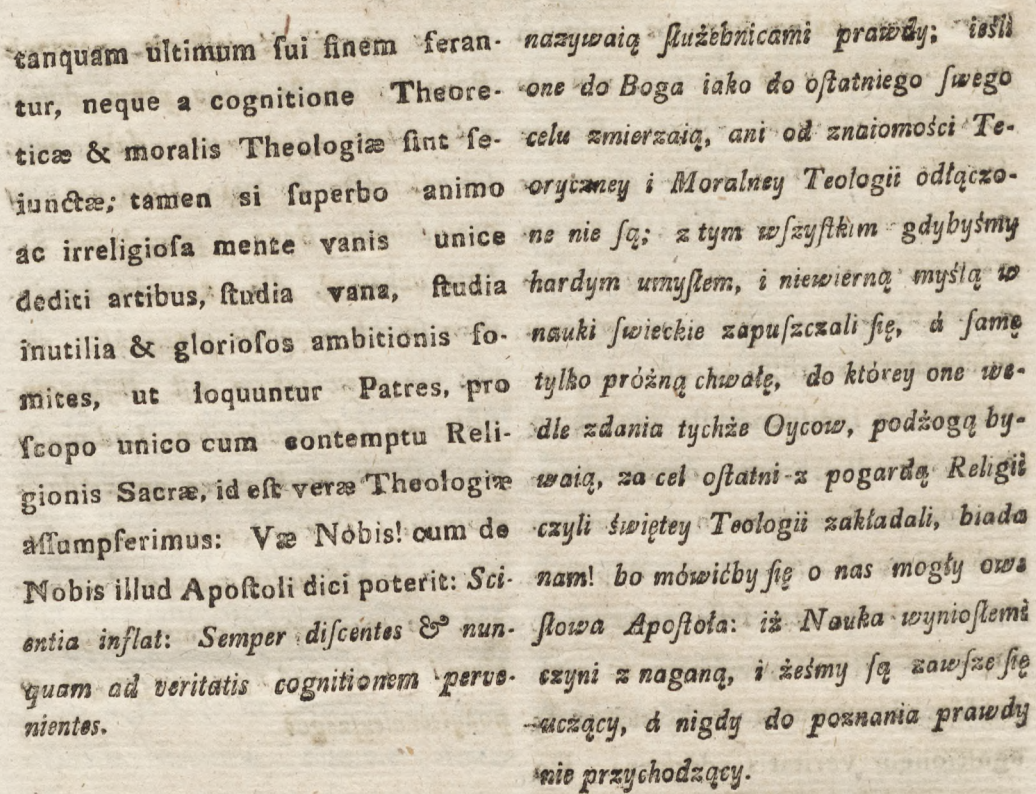 tanquam ultimum ſui finem feran-
tur, neque a cognitione Theore-
ticæ & moralis Theologiæ ſint ſe-
iunctæ; tamen si ſuperbo animo
ac irreligioſa mente vanis unice
dediti artibus, ſtudia vana, ſtudia
inutilia & glorioſos ambitionis fo-
mites, ut loquuntur Patres, pro
ſcopo unico cum contemptu Reli-
gionis Sacræ, id eſt veræ Theologiæ
aſſumpſerimus: Væ Nobis! cum de
Nobis illud Apoſtoli dici poterit: Sci-
entia inflat: Semper diſcentes & nun-
quam ad veritatis cognitionem perve-
nientes.
nazywaią ſłużebnicami prawdy; ieśli
one do Boga iako do oſtatniego ſwego
celu zmierzaią, ani od znaiomości Te-
oryczney i Moralney Teologii odłączo-
ne nie ſą; z tym wſzyſtkim gdybyśmy
hardym umyſłem, i niewierną myślą w
nauki ſwieckie zapuſzczali ſię, á ſamę
tylko próżną chwałę, do którey one we-
dle zdania tychże Oycow, podżogą by-
waią, za cel oſtatni z pogardą Religii
czyli świętey Teologii zakładali, biada
nam! bo mówićby ſię o nas mogły owe
ſłowa Apoſtoła: iż Nauka wynioſłemi
czyni z naganą, i żeśmy ſą zawſze ſię
uczący, á nigdy do poznania prawdy
nie przychodzący.